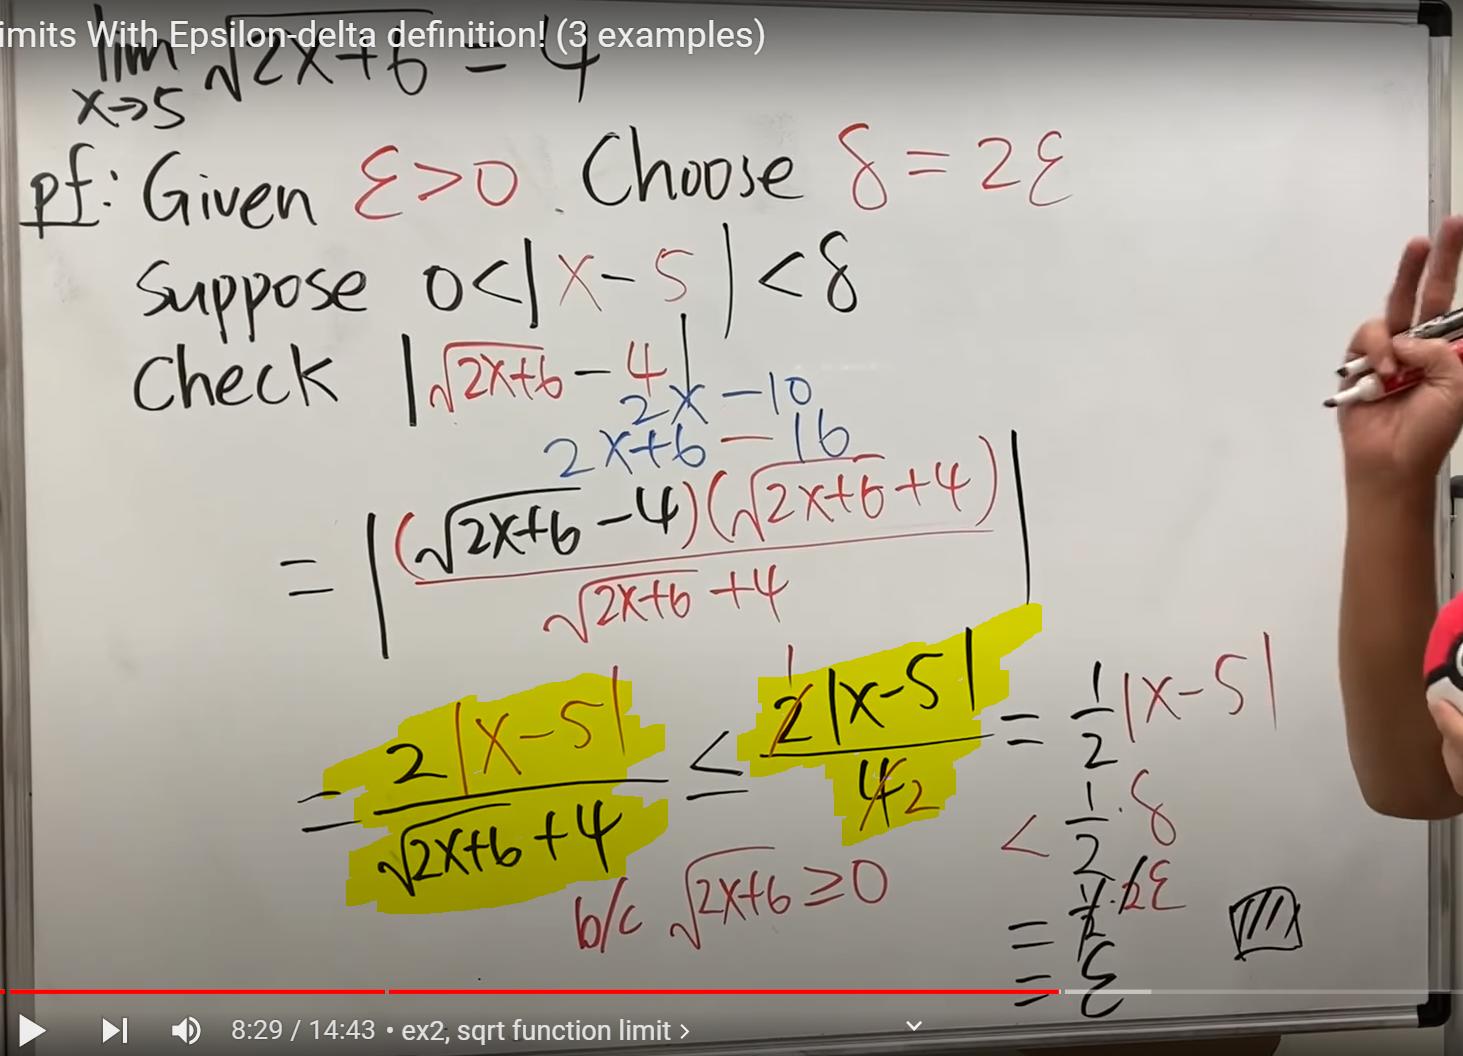 imits With Epsilon-delta definition! (3 examples)
lim √2x+6 = 4
x→5
pf: Given ε>0. Choose δ = 2ε
Suppose 0<|x-5|<δ
Check |√2x+6 - 4|
2x-10
2x+6-16
= |(√2x+6 -4)(√2x+6 +4)|
√2x+6 +4
= 2|x-5| / √2x+6 +4 ≤ 1 2|x-5| / 4 2 = 1/2 |x-5|
< 1/2·δ
b/c √2x+6 ≥0
= 1/2·2ε
= ε
8:29 / 14:43 • ex2, sqrt function limit >